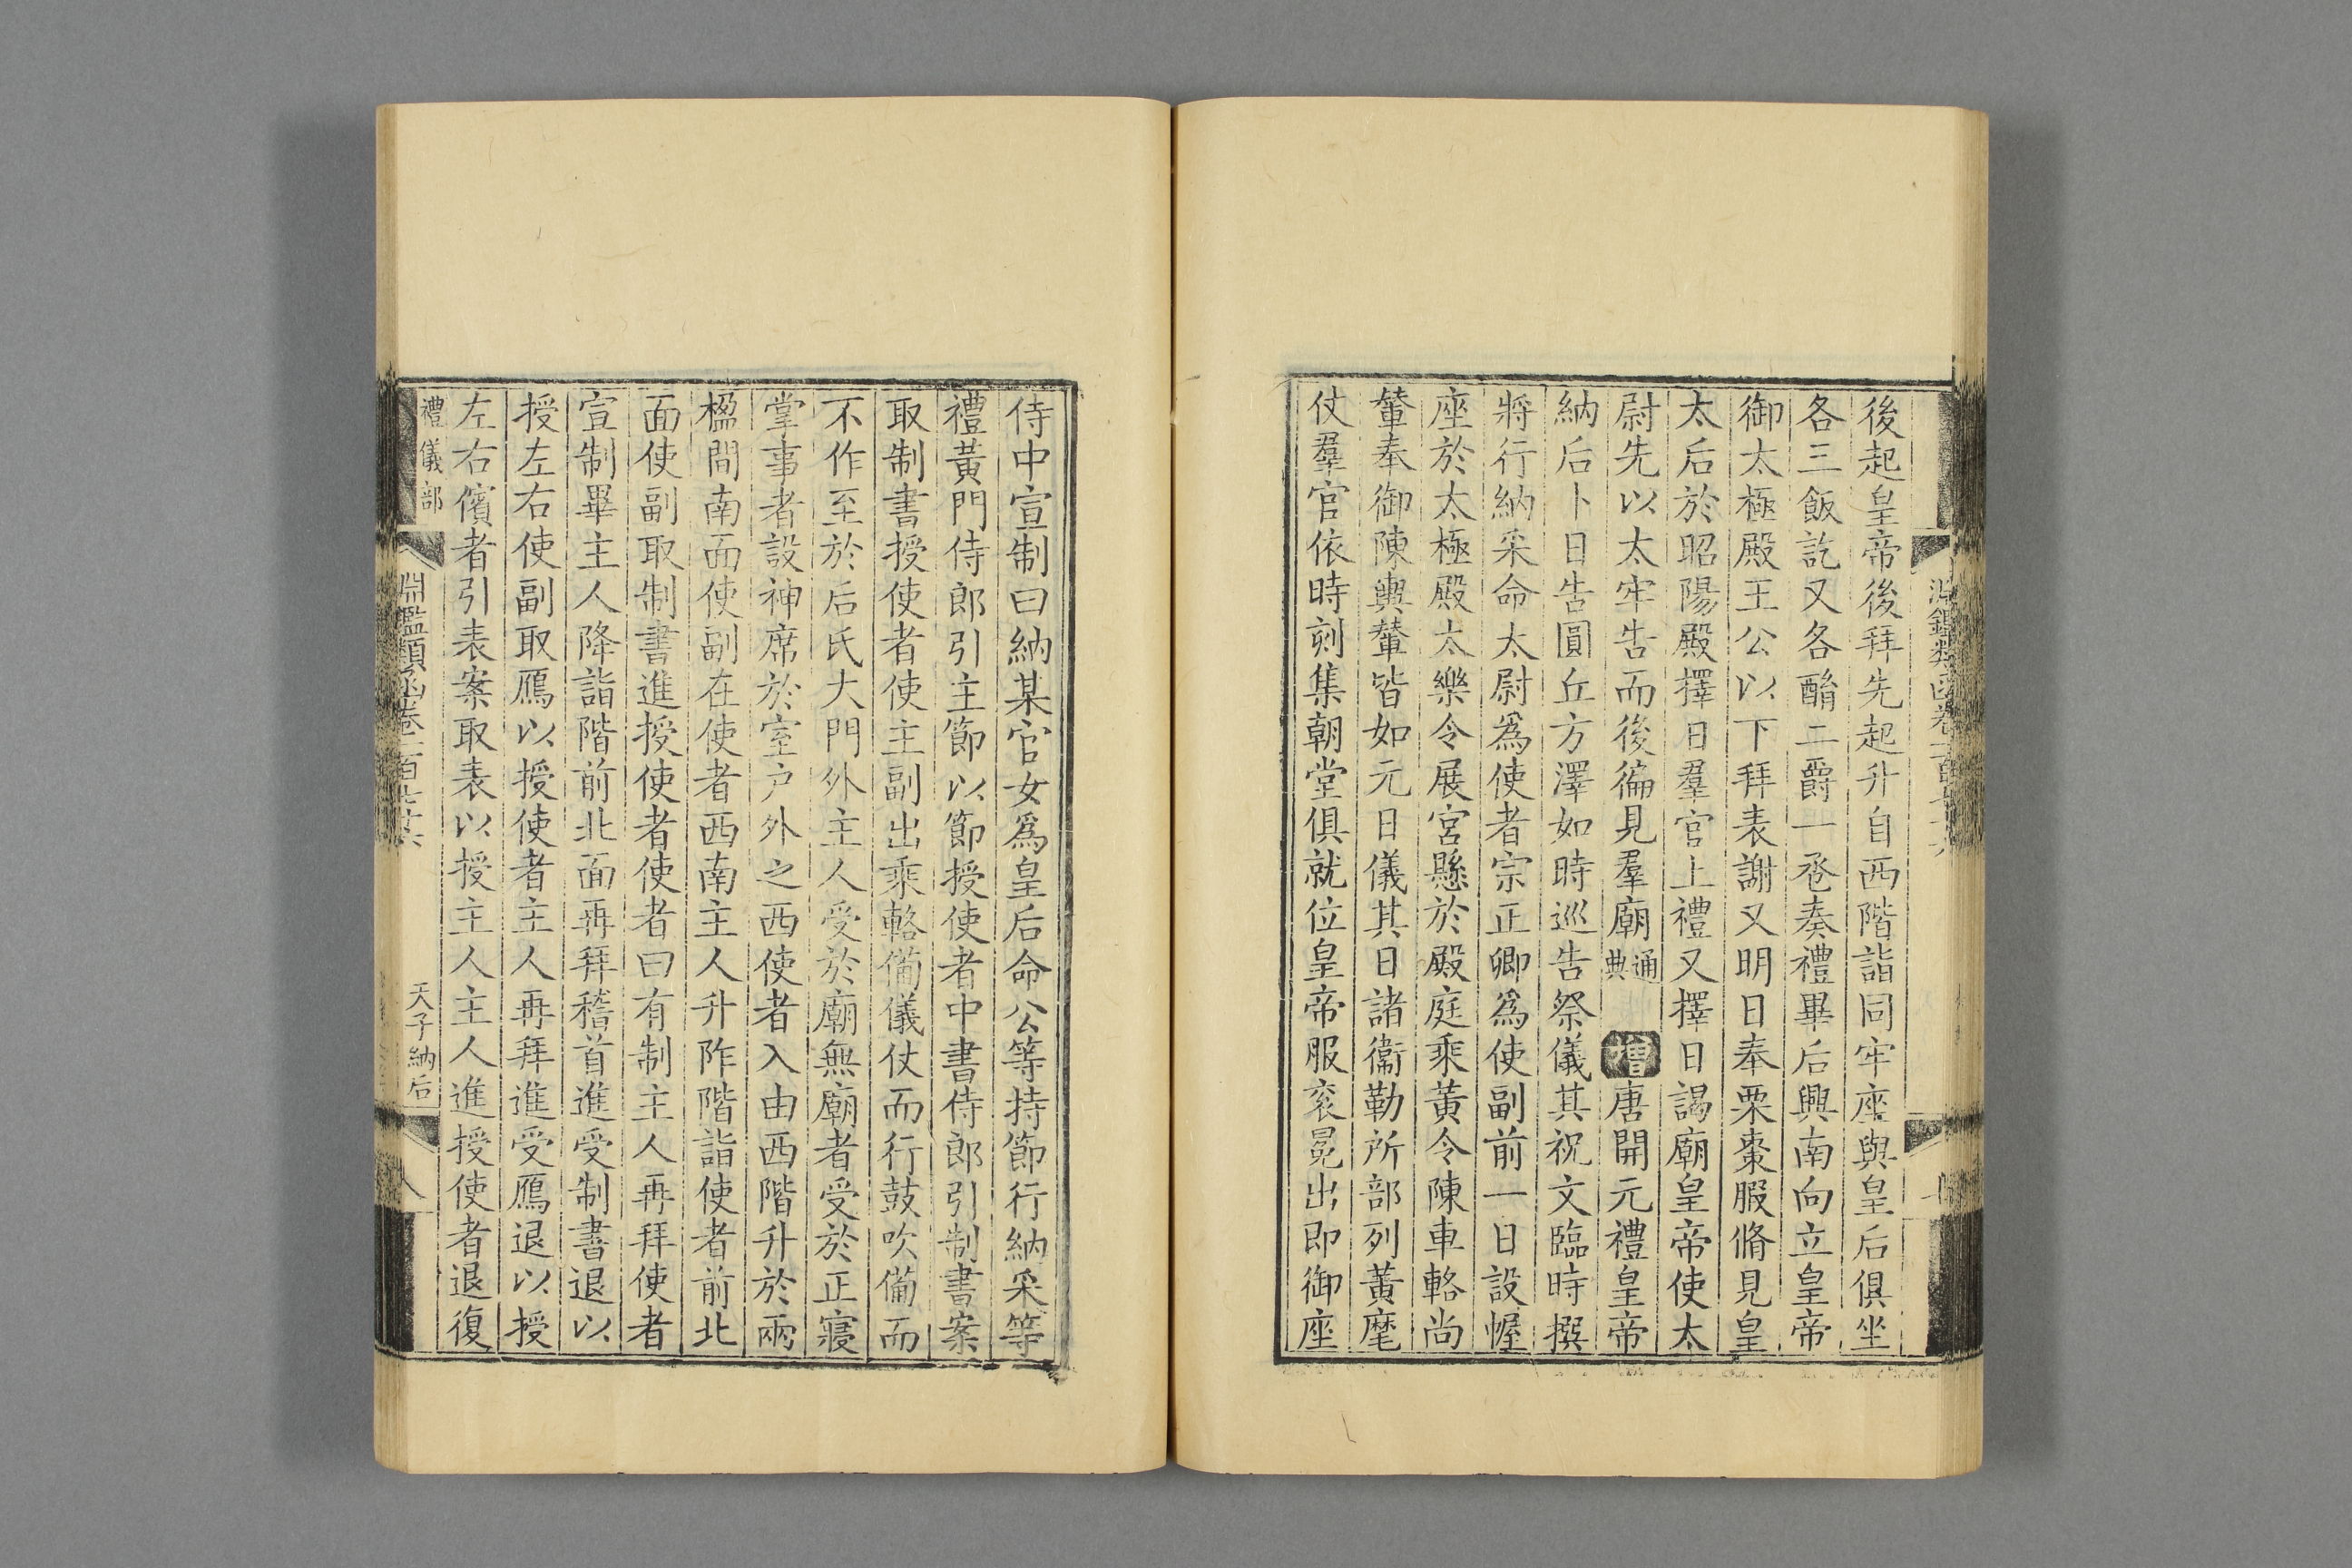 後起皇帝後拜先起升自西階詣同牢座與皇后俱坐
各三飯訖又各酳二爵一巹奏禮畢后興南向立皇帝
御太極殿王公以下拜表謝又明日奉栗棗腶脩見皇
太后於昭陽殿擇日羣官上禮又擇日謁廟皇帝使太
尉先以太牢告而後徧見羣廟通典 增唐開元禮皇帝
納后卜日告圓丘方澤如時巡告祭儀其祝文臨時撰
將行納采命太尉為使者宗正卿為使副前一日設幄
座於太極殿太樂令展宮懸於殿庭乘黃令陳車輅尚
輦奉御陳輿輦皆如元日儀其日諸衞勒所部列黃麾
仗羣官依時刻集朝堂俱就位皇帝服衮冕出即御座
侍中宣制曰納某官女為皇后命公等持節行納采等
禮黃門侍郎引主節以節授使者中書侍郎引制書案
取制書授使者使主副出乘輅備儀仗而行鼓吹備而
不作至於后氏大門外主人受於廟無廟者受於正寢
掌事者設神席於室戶外之西使者入由西階升於兩
楹間南面使副在使者西南主人升阼階詣使者前北
面使副取制書進授使者使者曰有制主人再拜使者
宣制畢主人降詣階前北面再拜稽首進受制書退以
授左右使副取鴈以授使者主人再拜進受鴈退以授
左右儐者引表案取表以授主人主人進授使者退復
禮儀部 淵鑑類函卷一百七十六 天子納后 八